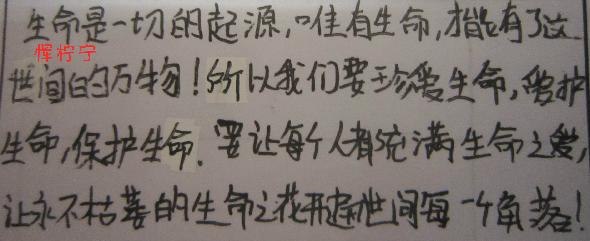 生命是一切的起源,唯有生命,才能有了这
恽柠宁
世间的万物!所以我们要珍爱生命,爱护
生命,保护生命.要让每个人都充满生命之爱,
让永不枯萎的生命之花开遍世间每一个角落!